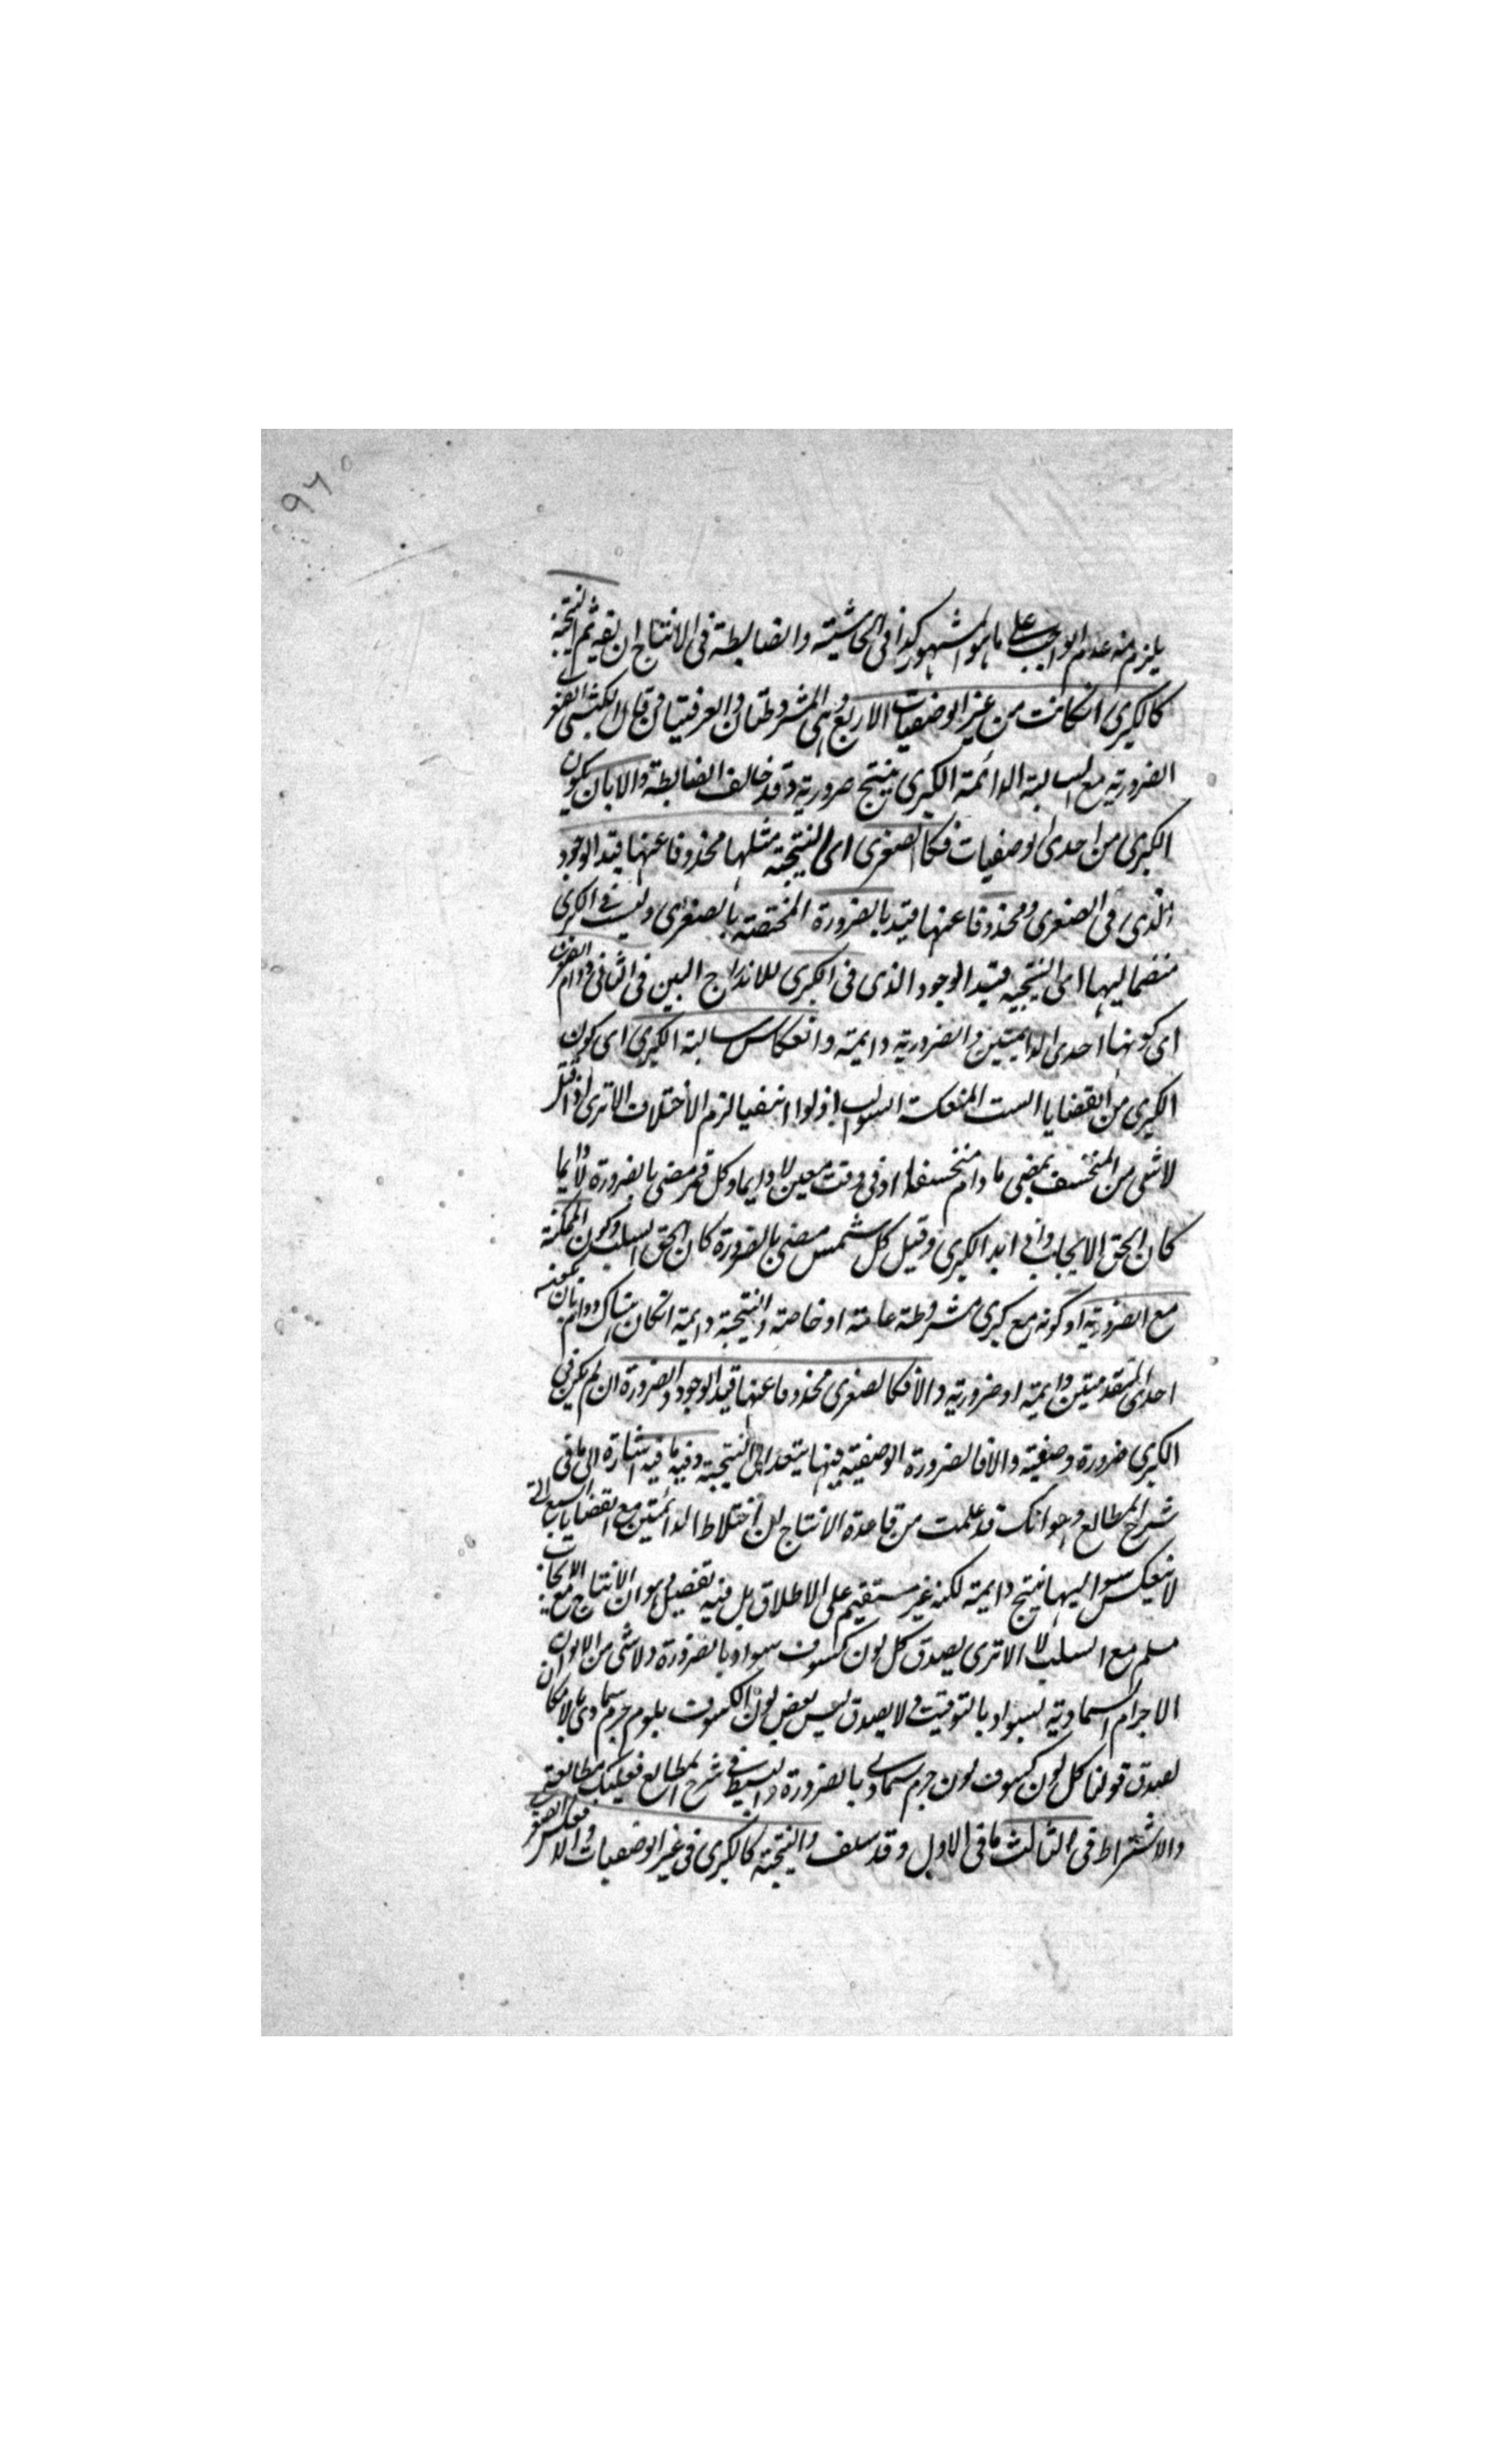 ٩٦
يلزم منه عدم الواجب على ما هو المشهور كذا فى الحاشيته والضابطة فى الانتاج ان النتيجة
كالكبرى انكانت من غير الوضعيات الاربع وهى المشروطتان والعرفيتان قال الكشى الصغر
الضرورية مع السالبة الدائمة الكبرى ينتج ضرورية وقد خالف الضابطة والا بان يكون
الكبرى من احدى الوصفيات فكالصغرى اى النتيجة مثلها محذوفا عنها قيد الوجود
الذى فى الصغرى ومحذوفا عنها قيد بالضرورة المختصة بالصغرى وليست فى الكبرى
منضما اليها اى النتيجة قيد الوجود الذى فى الكبرى للاندراج البين فى الثانى دوام الصغرى
اى كونها احدى الدايمتين والضرورية دايمة وانعكاس سالبة الكبرى اى كون
الكبرى من القضايا الست المنعكسة السوالب اذ لو انتفيا لزم الاختلاف الا ترى اذا قيل
لا شى من المنخسف بمضى ما دام منخسفا او فى وقت معين لا دايما وكل قمر مضى بالضرورة لا دايما
كان الحق الايجاب واذا ابد الكبرى وقيل كل شمس مضى بالضرورة كان الحق السلب وكون الممكنة
مع الضرورية او كونه مع كبرى مشروطة عامة او خاصة والنتيجة دايمة انكان هناك دوام بان يكون
احدى المقدمتين دايمة او ضرورية والا فكالصغرى محذوفا عنها قيد الوجود والضرورة ان لم يكن فى
الكبرى ضرورة وصفية والا فالضرورة الوصفية فيها يتعدى الى النتيجة وفيه ما فيه اشارة الى ما فى
شرح المطالع وهو انك قد علمت من قاعدة الانتاج ان اختلاط الدائمتين مع القضايا السبع التى
لا ينعكس سوالبها ينتج دايمة لكنه غير مستقيم على الاطلاق بل فيه تفصيل وهو ان الانتاج مع الايجاب
مسلم مع السلب لا الا ترى يصدق كل لون كسوف سواد بالضرورة ولا شى من الوان
الاجرام السماوية بسواد بالتوقيت ولا يصدق ليس بعض لون الكسوف بلون جرم سماوى بالامكان
لصدق قولنا كل لون كسوف لون جرم سماوى بالضرورة والبسط فى شرح المطالع فعليك بمطالعته
والاشتراط فى الثالث ما فى الاول وقد سلف والنتيجة كالكبرى فى غير الوصفيات والا فكعكس الصغرى